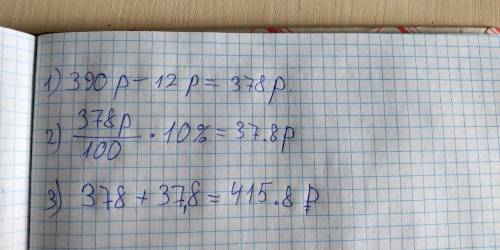 1) 390 р - 12 р = 378 р.
2) 378р/100 · 10% = 37.8р
3) 378 + 37,8 = 415.8 ₽